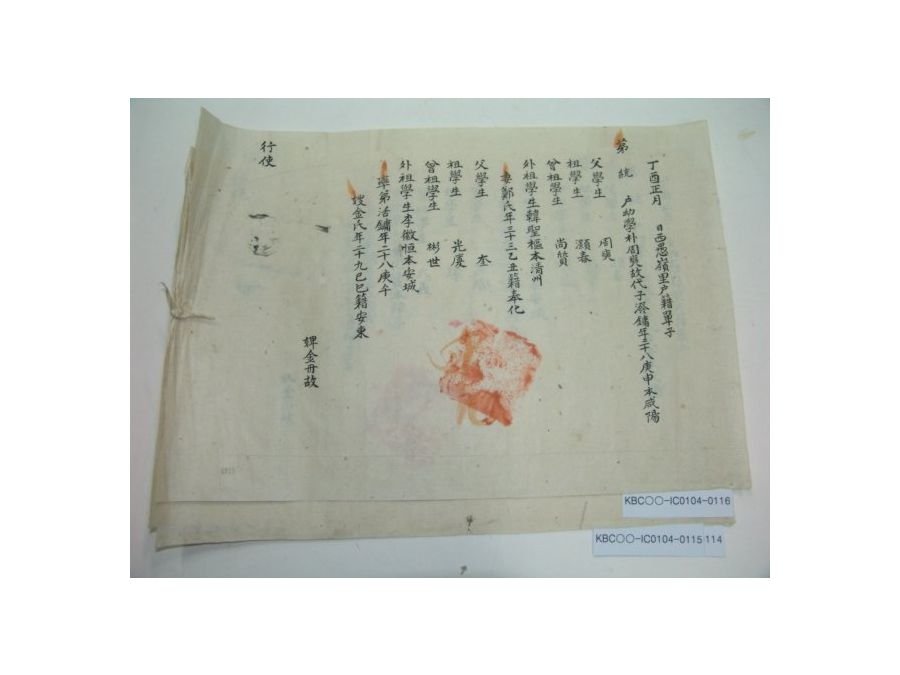 丁酉正月 日西面嶺里戶籍單子
第 統 戶幼學朴周奭故代子滎鏞年三十八庚申本咸陽
父學生 周奭
祖學生 灝春
曾祖學生 尚贇
外祖學生韓聖樞本清州
妻鄭氏年三十三乙丑籍奉化
父學生 奎
祖學生 光慶
曾祖學生 彬世
外祖學生李徽恒本安城
率弟活鏞年二十八庚午
嫂金氏年二十九己巳籍安東
婢金丹故
行使
KBC〇〇-IC0104-0116
KBC〇〇-IC0104-0115
114